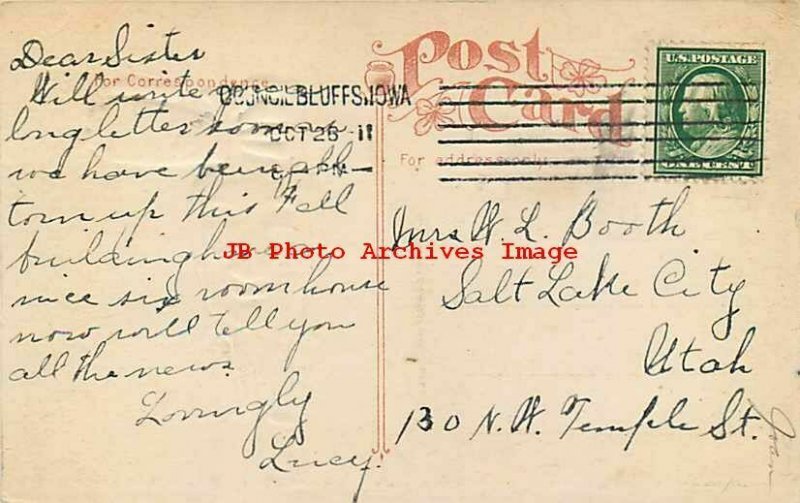 Dear Sister
Will write you a
long letter soon
we have been all
torn up this Fall
building have a
nice six room house
now will tell you
all the news
Lovingly
Lucy.
For Correspondence
COUNCIL BLUFFS, IOWA
OCT 26 11
Post
Card
For address only
U.S. POSTAGE
ONE CENT
JB Photo Archives Image
Mrs W. L. Booth
Salt Lake City
Utah
130 N. W. Temple St.